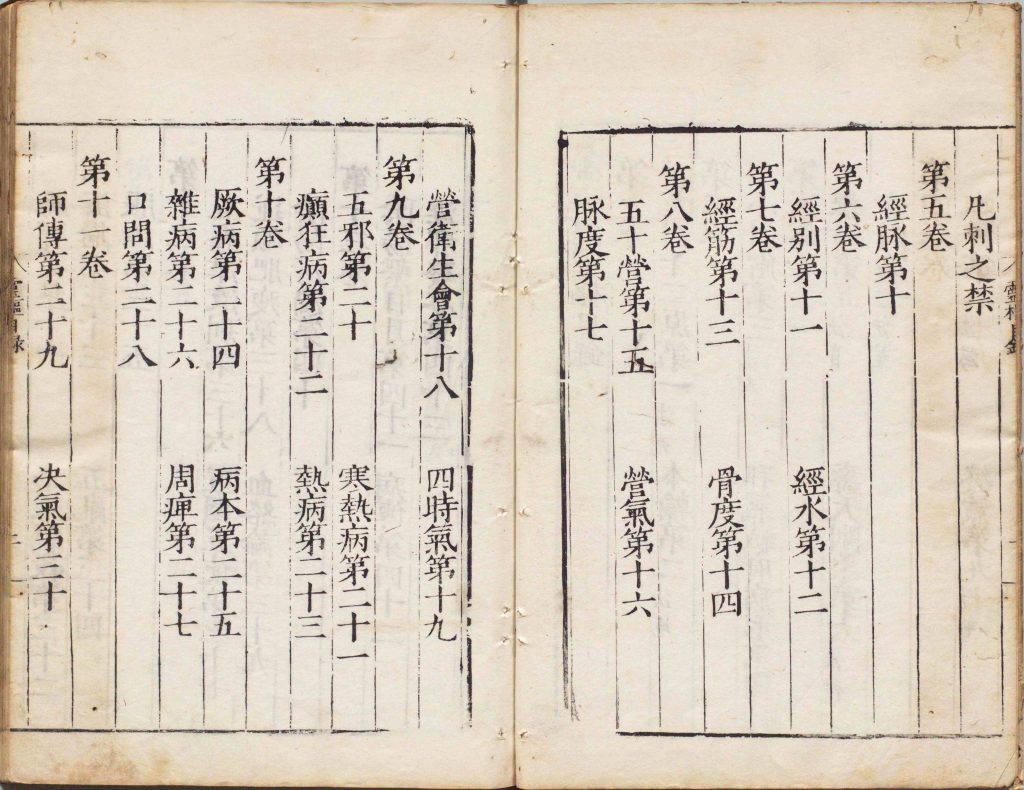 凡刺之禁
第五卷
經脉第十
第六卷
經别第十一 經水第十二
第七卷
經筋第十三 骨度第十四
第八卷
五十營第十五 營氣第十六
脉度第十七
營衛生會第十八 四時氣第十九
第九卷
五邪第二十 寒熱病第二十一
癲狂病第二十二 熱病第二十三
第十卷
厥病第二十四 病本第二十五
雜病第二十六 周痺第二十七
口問第二十八
第十一卷
師傳第二十九 决氣第三十